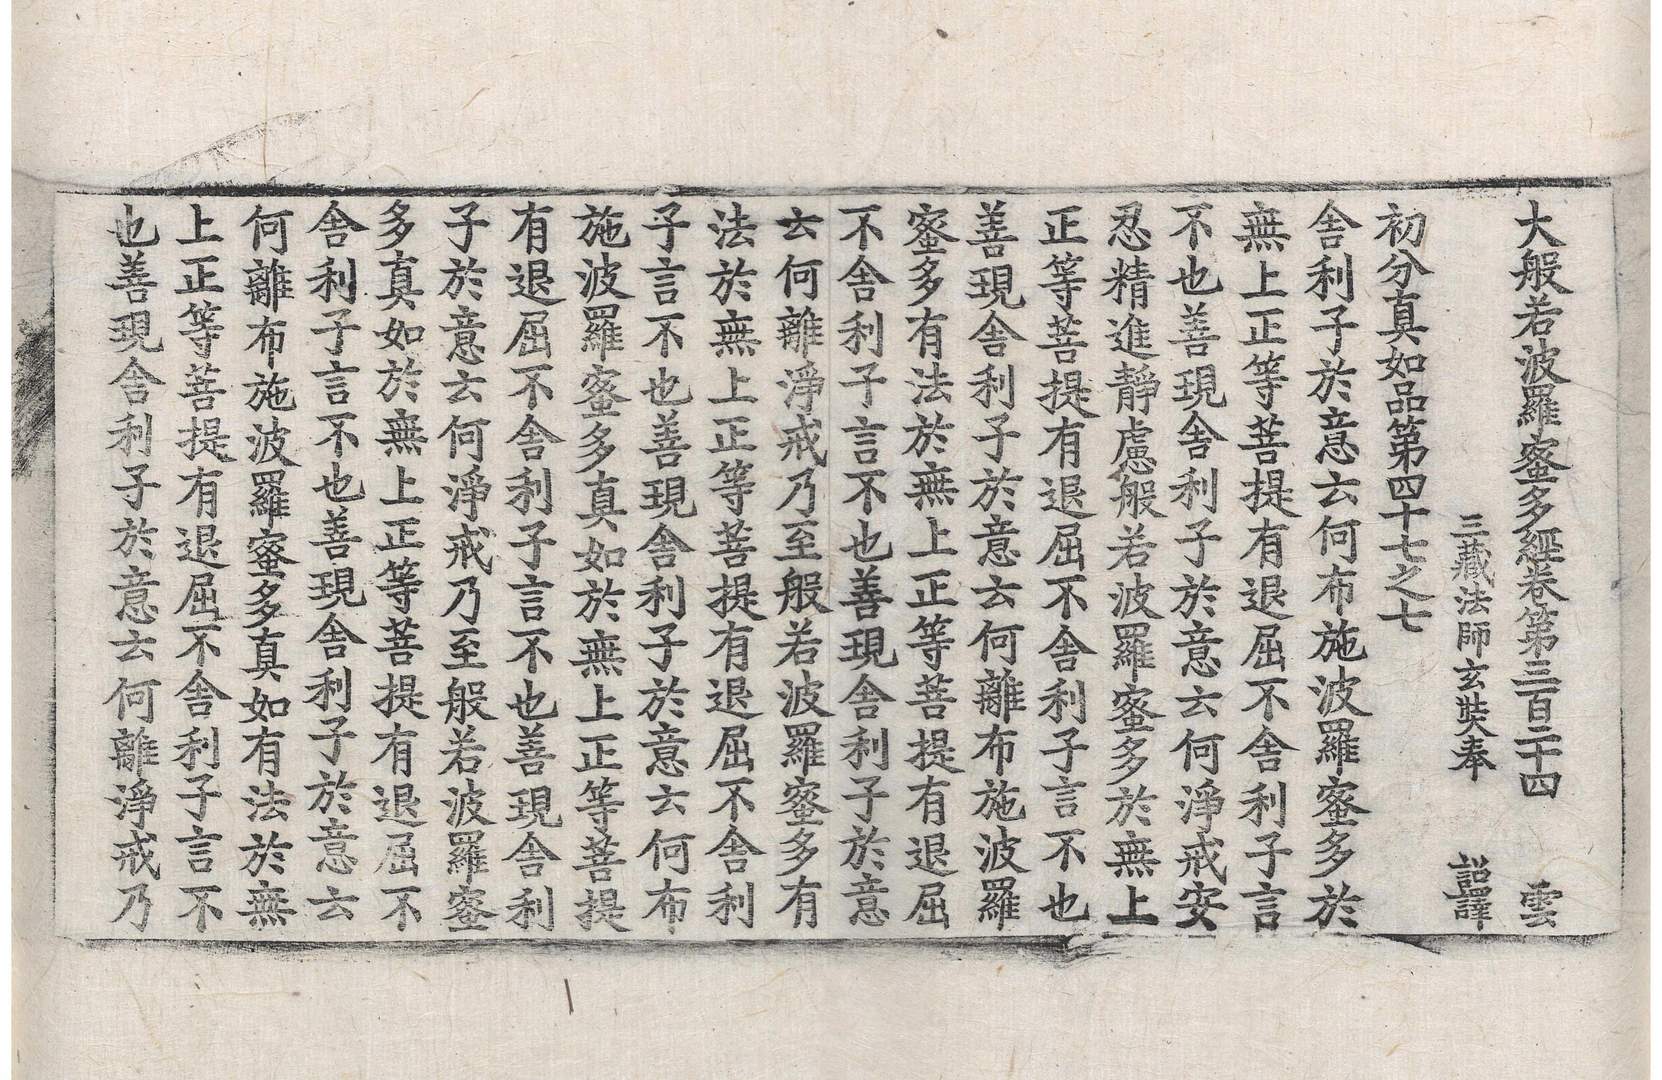 大般若波羅蜜多經卷第三百二十四 雲
三藏法師玄奘奉 詔譯
初分真如品第四十七之七
舍利子於意云何布施波羅蜜多於
無上正等菩提有退屈不舍利子言
不也善現舍利子於意云何淨戒安
忍精進靜慮般若波羅蜜多於無上
正等菩提有退屈不舍利子言不也
善現舍利子於意云何離布施波羅
蜜多有法於無上正等菩提有退屈
不舍利子言不也善現舍利子於意
云何離淨戒乃至般若波羅蜜多有
法於無上正等菩提有退屈不舍利
子言不也善現舍利子於意云何布
施波羅蜜多真如於無上正等菩提
有退屈不舍利子言不也善現舍利
子於意云何淨戒乃至般若波羅蜜
多真如於無上正等菩提有退屈不
舍利子言不也善現舍利子於意云
何離布施波羅蜜多真如有法於無
上正等菩提有退屈不舍利子言不
也善現舍利子於意云何離淨戒乃